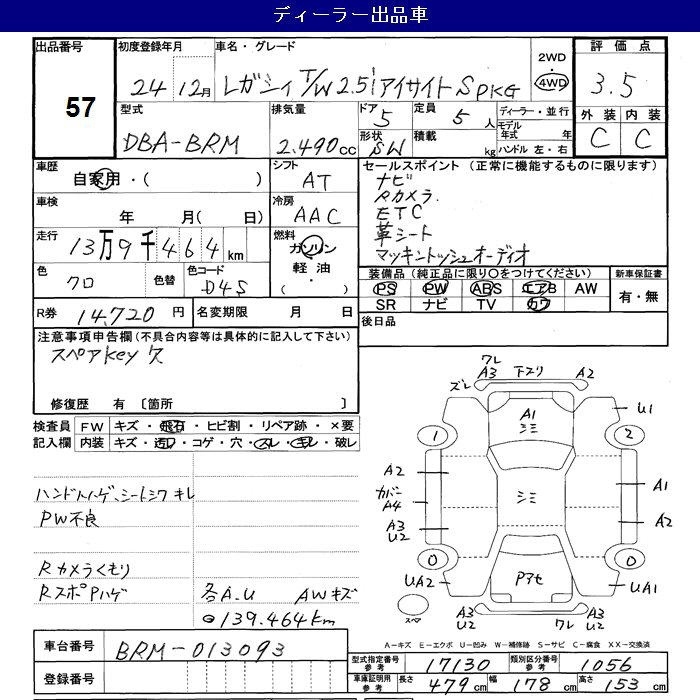 ディーラー出品車
出品番号 57
初度登録年月 24年 12月
車名・グレード レガシィ T/W 2.5i アイサイト S PKG
2WD
4WD
評価点 3.5
外装 C 内装 C
型式 DBA-BRM
排気量 2,490cc
ドア 5
形状 SW
定員 5人
積載 kg
ディーラー・並行
モデル年式 年
ハンドル 左・右
車歴 自家用・( )
シフト AT
セールスポイント (正常に機能するものに限ります)
ナビ
Rカメラ
ETC
革シート
マッキントッシュオーディオ
車検 年 月( 日)
冷房 AAC
走行 13万9千464km
燃料 ガソリン
軽油
( ・ )
色 クロ 色替
色コード D4S
装備品 (純正品に限り〇をつけてください)
PS PW ABS エアB AW
SR ナビ TV カワ
新車保証書
有・無
R券 14,720円
名変期限 月 日
後日品
注意事項申告欄 (不具合内容等は具体的に記入して下さい)
スペアkey欠
修復歴 有 〔箇所 〕
検査員記入欄
FW キズ・飛石・ヒビ割・リペア跡・×要
内装 キズ・汚れ・コゲ・穴・スレ・キレ・破レ
ハンドルハゲ、シートシワ キレ
PW不良
Rカメラくもり
RスポPハゲ
各A.U AWキズ
◎139.464km
ワレ
ズレ A3 下スリ A2
A1
シミ
U1
1
2
A2
カバー
A4
A3
U2
シミ
A1
A2
0
0
UA2
Pアセ
UA1
スペア
A3
U2
ワレ
A3
U2
A-キズ E-エクボ U-凹み W-補修跡 S-サビ C-腐食 XX-交換済
車台番号 BRM-013093
登録番号
型式指定番号 参考 17130
類別区分番号 参考 1056
車庫証明用 参考 長さ 479cm 幅 178cm 高さ 153cm